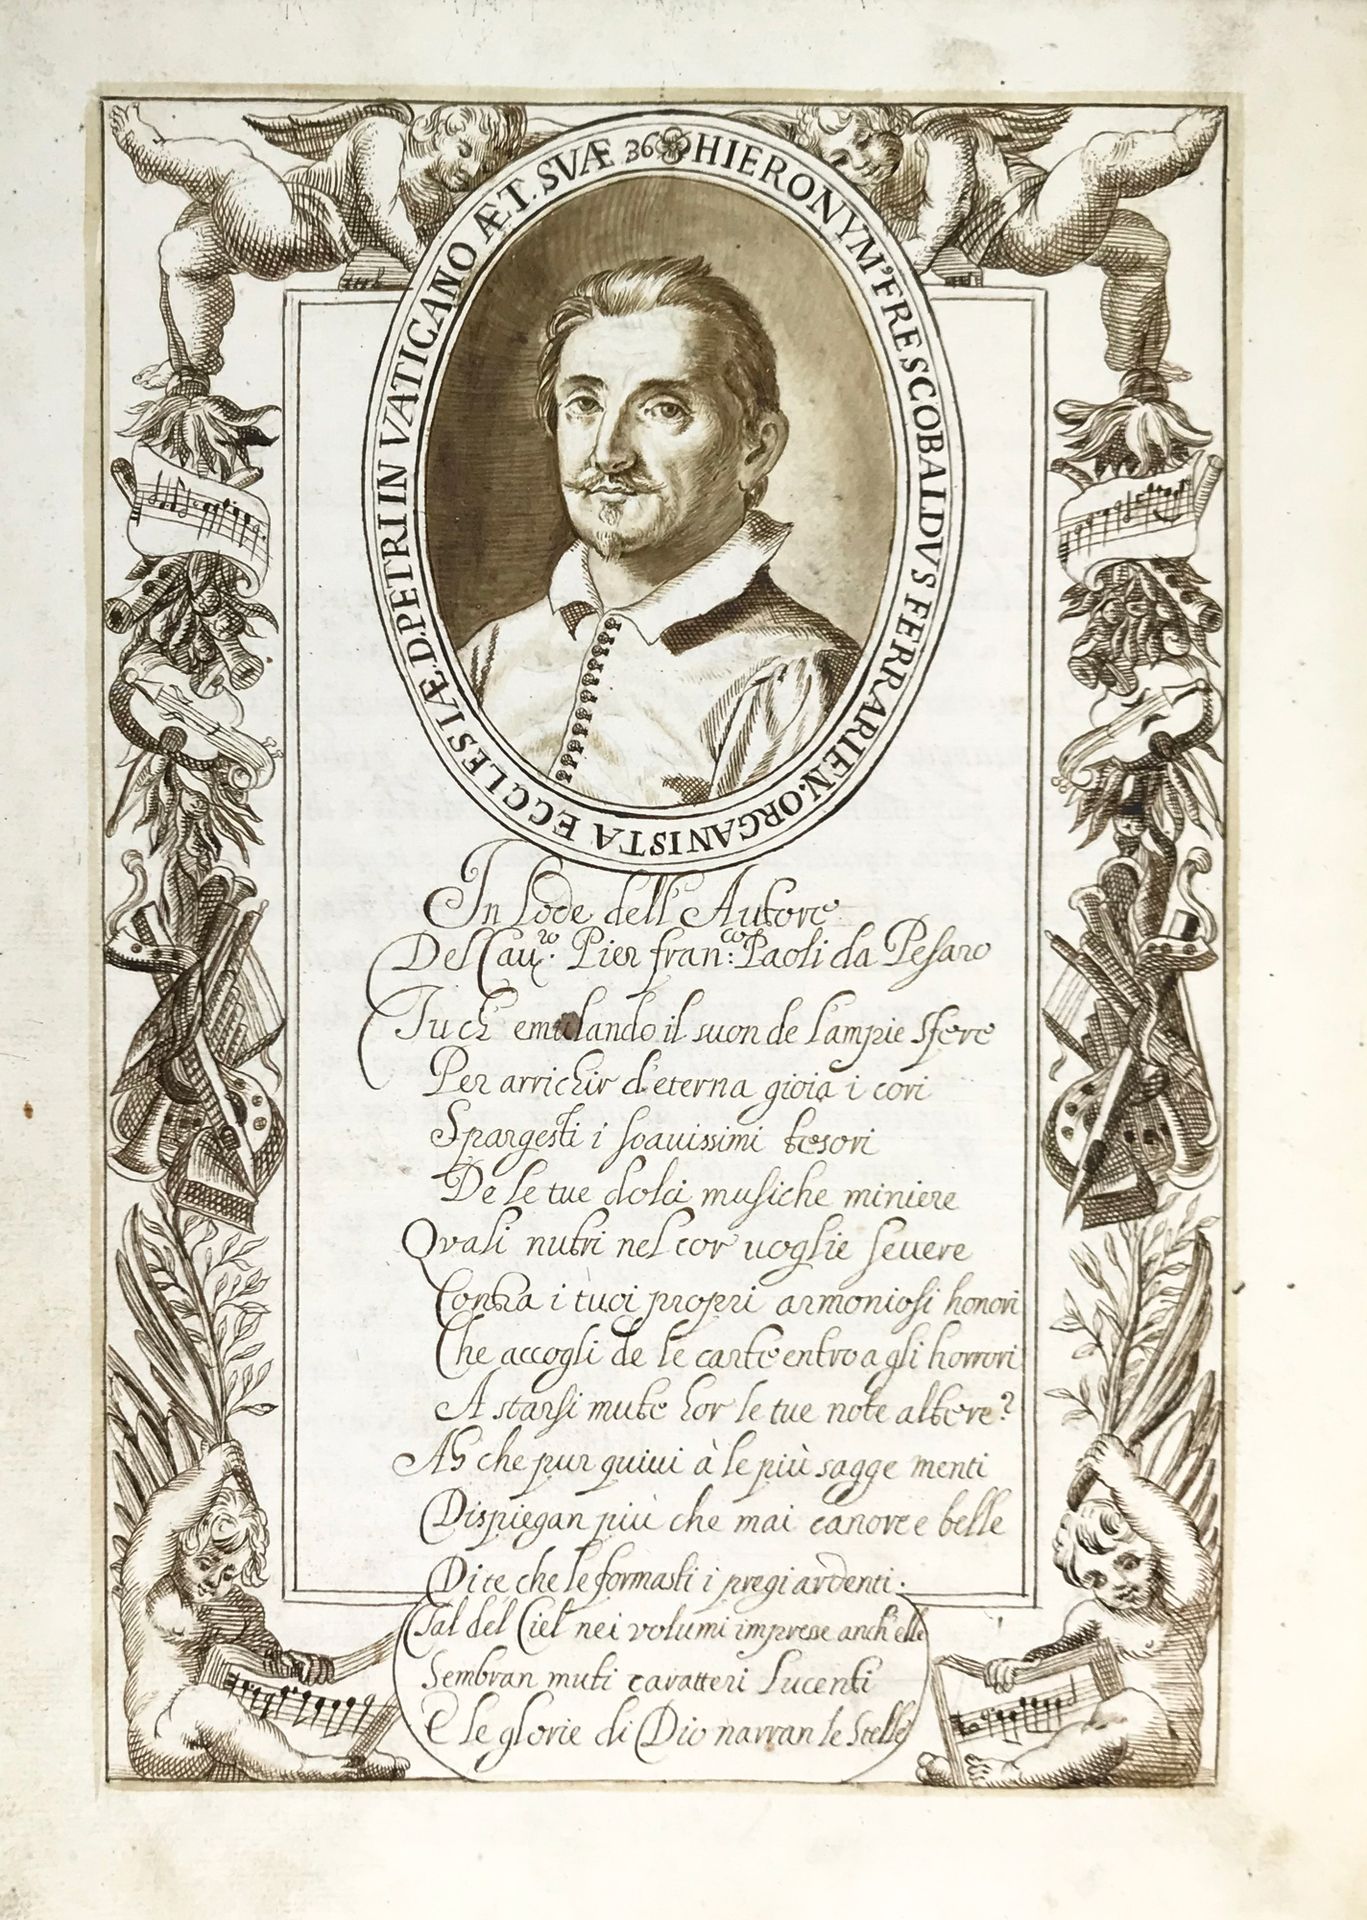 HIERONYM' FRESCOBALDVS FERRARIEN. ORGANISTA ECCLESIÆ. D. PETRI IN VATICANO ÆT. SVÆ 36
In Lode dell' Autore
Del Cau.ro Pier fran:co Paoli da Pesaro
Tu ch' emulando il suon de l'ampie sfere
Per arrichir d'eterna gioia i cori
Spargesti i soauissimi tesori
De le tue dolci musiche miniere
Quali nutri nel cor uoglie seuere
Contra i tuoi proprj armoniosi honori
Che accogli de le carte entro a gli horrori
A starsi mute hor le tue note altere?
Ah che pur quiui à le più sagge menti
Dispiegan più che mai canore e belle
Dite che le formasti i pregi ardenti.
Tal del Ciel nei volumi impresse anch'elle
Sembran muti caratteri Lucenti
E le glorie di Dio narran le Stelle